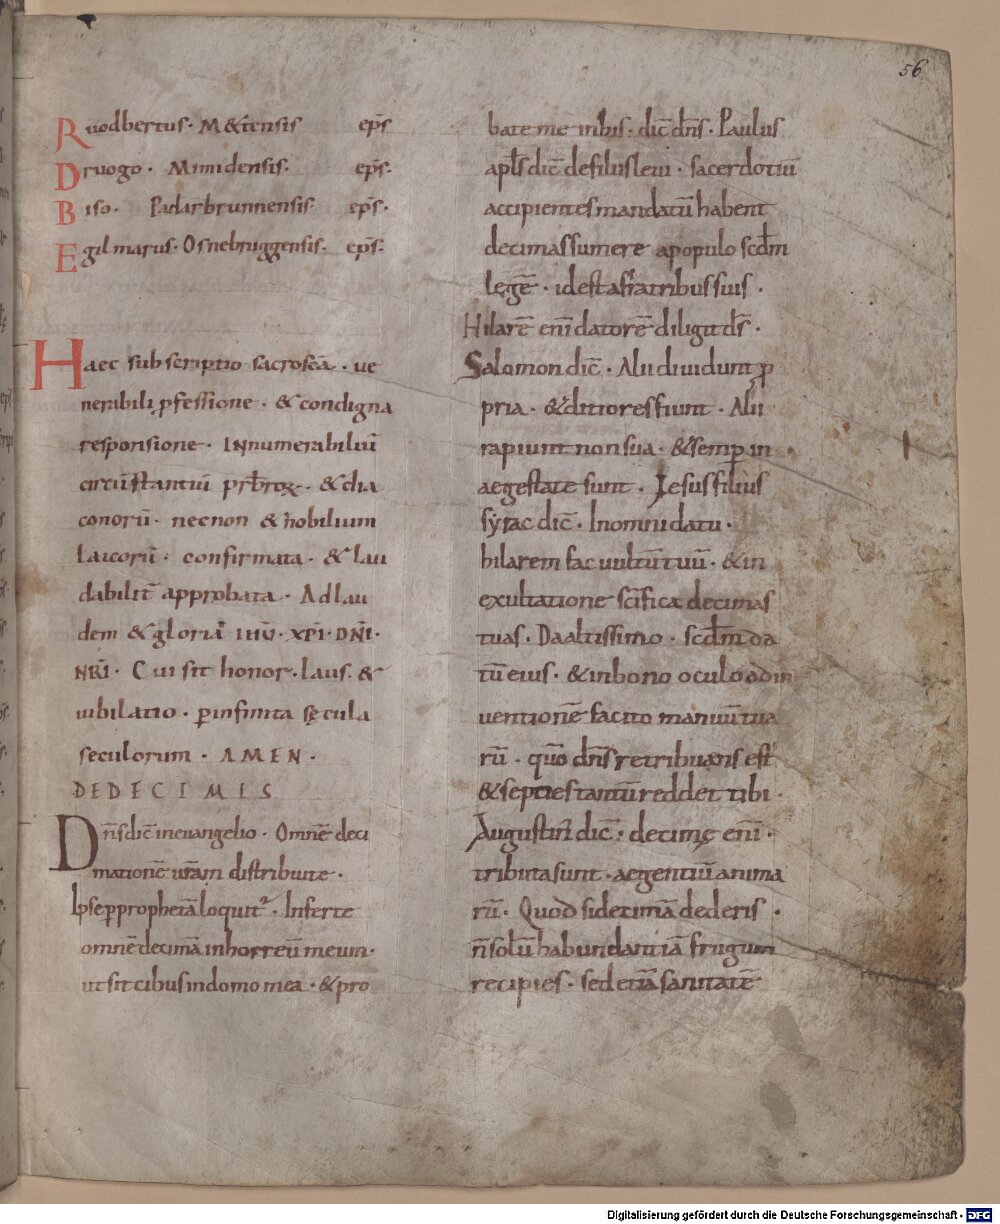 56
Ruodbertus · M&tensis ep̄s
Druogo · Mimidensis · ep̄s ·
Biso · Padarbrunnensis ep̄s ·
Egilmarus · Osnebruggensis · ep̄s ·
Haec subscriptio sacrosc̄a · ue
nerabili ꝓfessione · & condigna
responsione · INnumerabiliū
circūstantiū prb̄roꝝ · & dia
conorū · necnon & nobilium
Laicorū · confirmata · & lau
dabilit̄ approbata · Ad lau
dem & gloriā ihū · xp̄i · DN̄I ·
NR̄I · Cui sit honor · laus · &
iubilatio · ꝑ infinita sęcula
seculorum · AMEN ·
DE DECIMIS
Dn̄s dic̄ in euangelio · Omnē deci
mationē ur̄am distribuite ·
Ipse ꝑ prophetā loquit᷒ · Inferte
omnē decimā in horreū meum ·
ut sit cibus in domo mea · & pro
bate me in his · dic̄ dn̄s · Paulus
apl̄s dic̄ de filiis leui · sacerdotiū
accipientes mandatū habent
decimas sumere a populo scd̄m
legē · id est a fratribus suis ·
Hilarē eni datorē diligit ds̄ ·
Salomon dic̄ · Alii diuidunt ꝓ
pria · & ditiores fiunt · Alii
rapiunt non sua · & semꝑ in
aegestate sunt · Iesus filius
syrac dic̄ · In omni datu ·
hilarem fac uultū tuū · & in
exultatione sc̄ifica decimas
tuas · Da altissimo · scd̄m da
tū eius · & in bono oculo ad in
uentionē facito manuū tua
rū · quō dn̄s retribuens est
& septies tantū reddet tibi ·
Augustin̄ dic̄ · decimę enī ·
tributa sunt · aegentiū anima
rū · Quod si decimā dederis ·
n̄ solū habundantiā frugum
recipies · sed etiā sanitatē
Digitalisierung gefördert durch die Deutsche Forschungsgemeinschaft - DFG